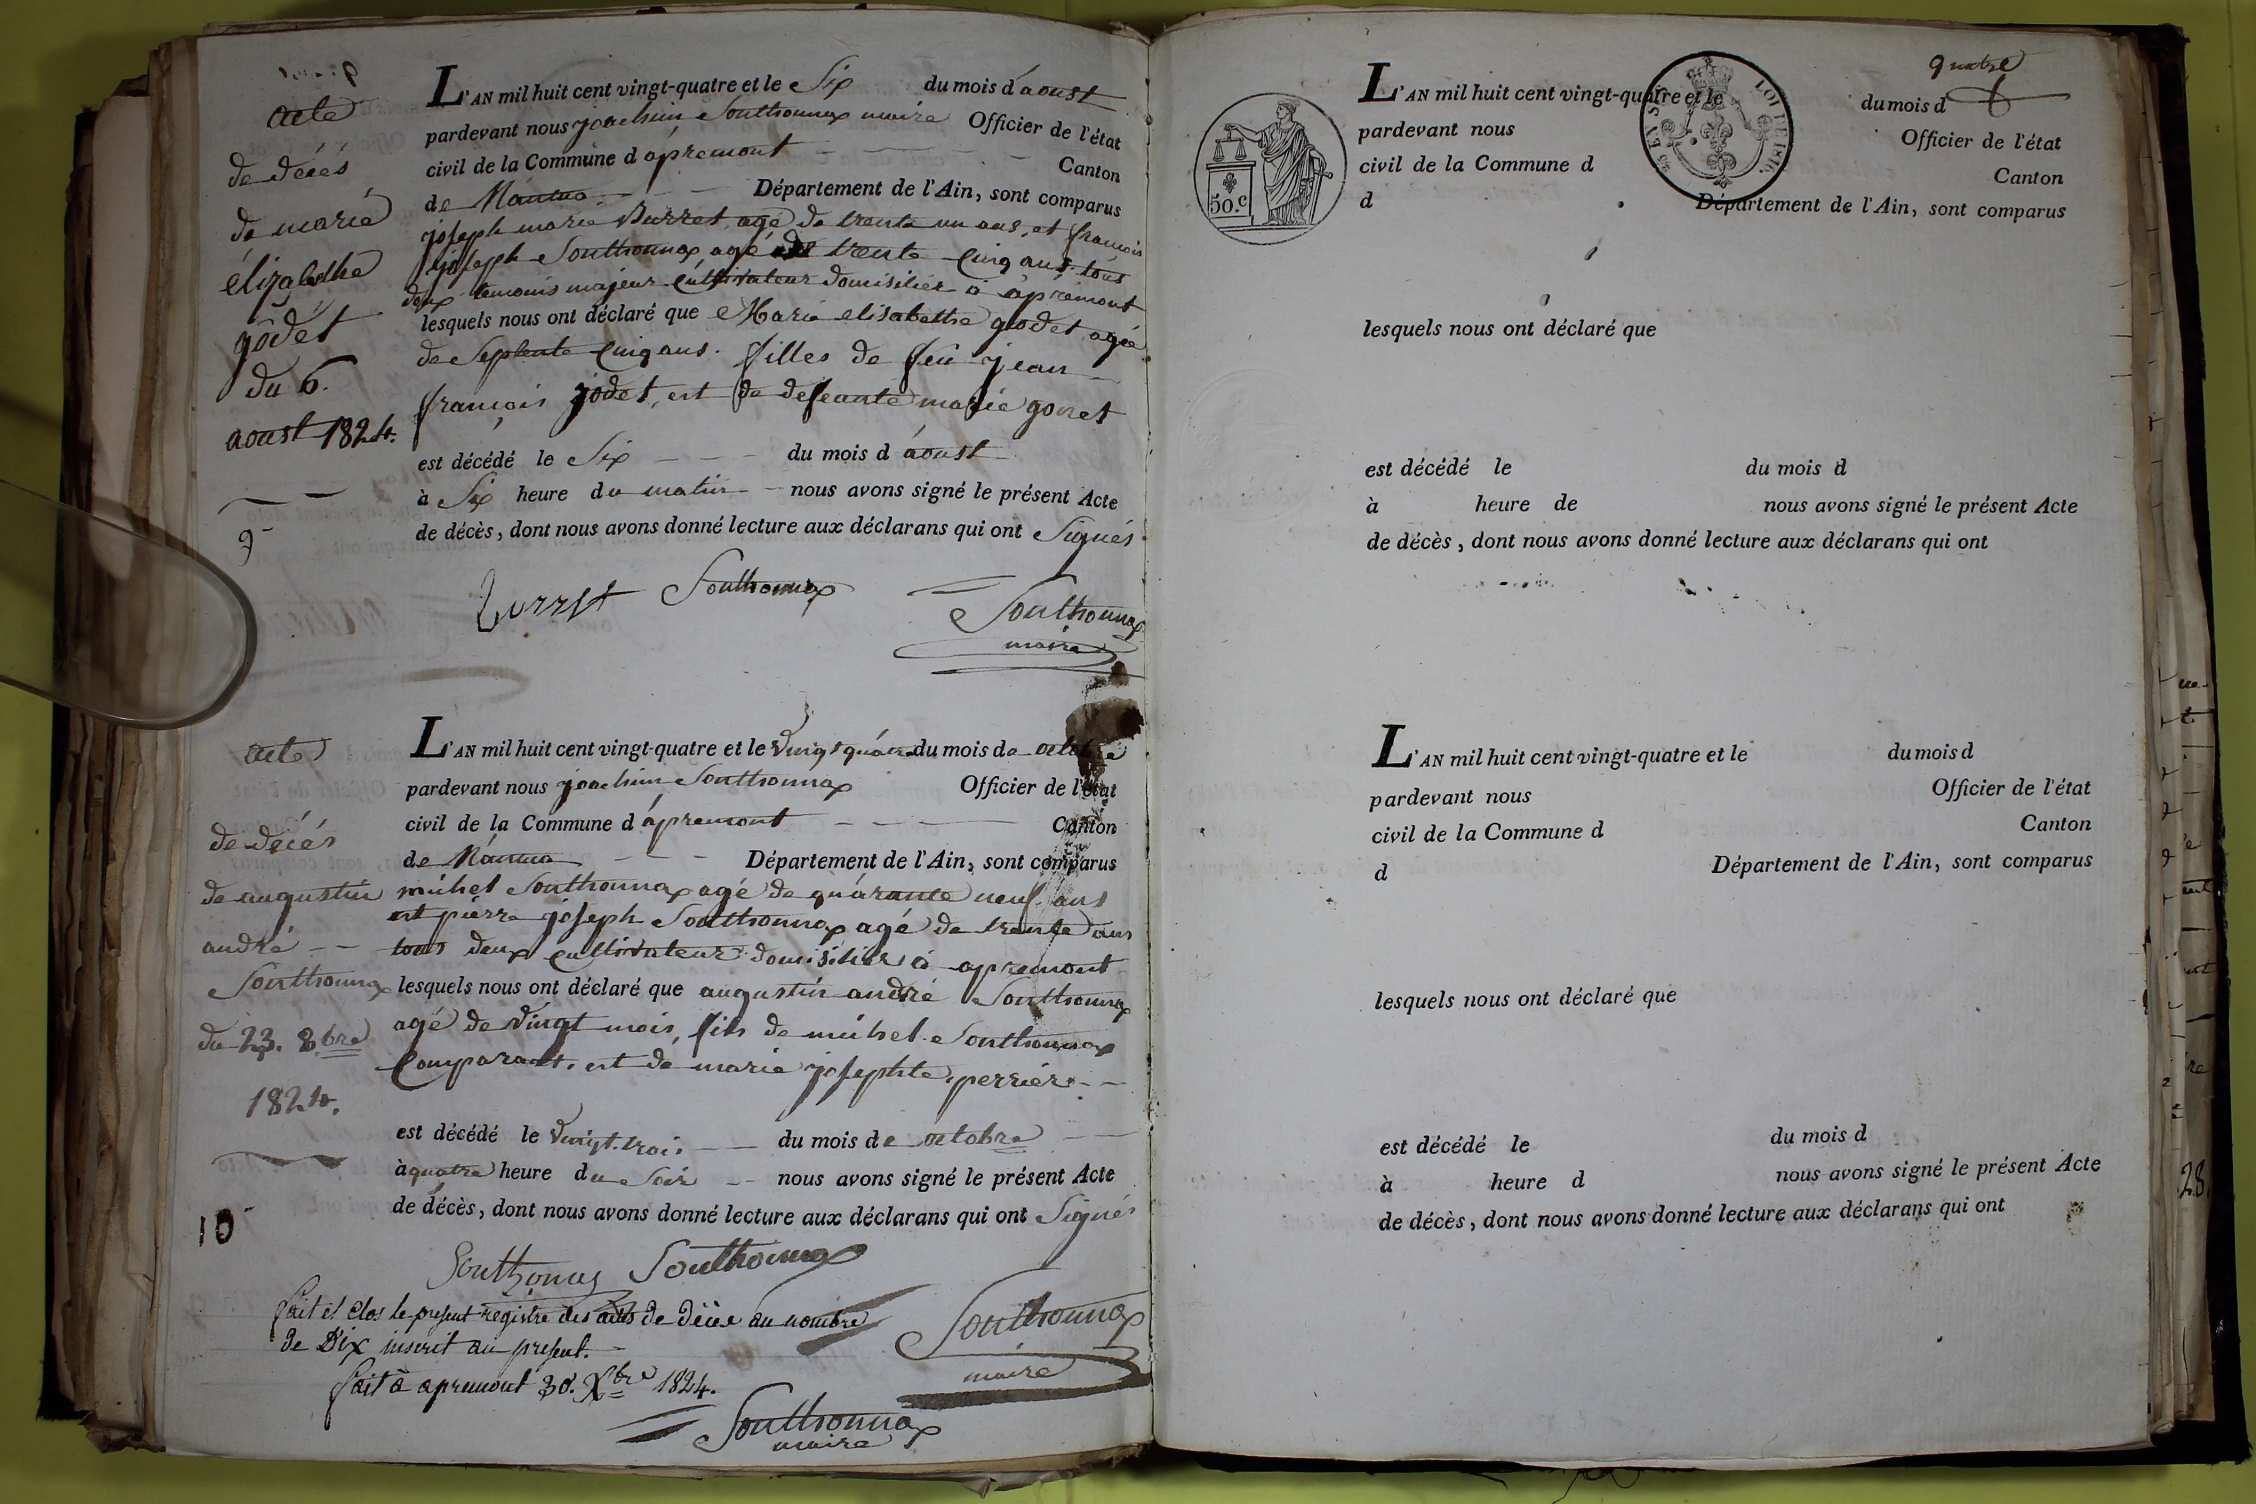 acte
de décés
de marie
élizabethe
gôdét
du 6.
aoust 1824.
9
L'AN mil huit cent vingt-quatre et le Six du mois d'aoust
pardevant nous joachim Sonthonnax maire Officier de l'état
civil de la Commune d'apremont Canton
de Nantua Département de l'Ain, sont comparus
joseph marie Burret, agé de trente un ans, et francois
joseph Sonthonnax agé de trente cinq ans tous
deux temoins majeur Cultivateur domisiliér à apremont
lesquels nous ont déclaré que Marie elisabethe godet agée
de Septente cinq ans. filles de feu jean
françois godet, est de defeante marie gonet
est décédé le Six du mois d'aoust
à Six heure du matin nous avons signé le présent Acte
de décès, dont nous avons donné lecture aux déclarans qui ont Signés
Sonthonnax
Sonthonnax
maire
acte
de décés
de augustin
andré
Sonthonnax
du 23. 8bre
1824.
10
L'AN mil huit cent vingt-quatre et le Vingt quatre du mois de octobre
pardevant nous joachim Sonthonnax Officier de l'état
civil de la Commune d'apremont Canton
de Nantua Département de l'Ain, sont comparus
michel Sonthonnax agé de quarante neuf ans
est pierre joseph Sonthonnax agé de trente ans
tous deux cultivateur domisiliér à apremont
lesquels nous ont déclaré que augustin andré Sonthonnax
agé de vingt mois, fils de michel Sonthonnax
Comparant, est de marie josephte perriér
est décédé le Vingt-trois du mois de octobre
à quatre heure du Soir nous avons signé le présent Acte
de décès, dont nous avons donné lecture aux déclarans qui ont Signés
Sonthonax Sonthonnax
Sonthonnax
maire
fait et clos le present registre des actes de décée au nombre
de Dix inscrit au present.
fait à apremont 30. Xbre 1824.
Sonthonnax
maire
quatre
50.c
LOI DE 1816.
L'AN mil huit cent vingt-quatre et le du mois d
pardevant nous Officier de l'état
civil de la Commune d Canton
d Département de l'Ain, sont comparus
lesquels nous ont déclaré que
est décédé le du mois d
à heure de nous avons signé le présent Acte
de décès, dont nous avons donné lecture aux déclarans qui ont
L'AN mil huit cent vingt-quatre et le du mois d
pardevant nous Officier de l'état
civil de la Commune d Canton
d Département de l'Ain, sont comparus
lesquels nous ont déclaré que
est décédé le du mois d
à heure d nous avons signé le présent Acte
de décès, dont nous avons donné lecture aux déclarans qui ont
28